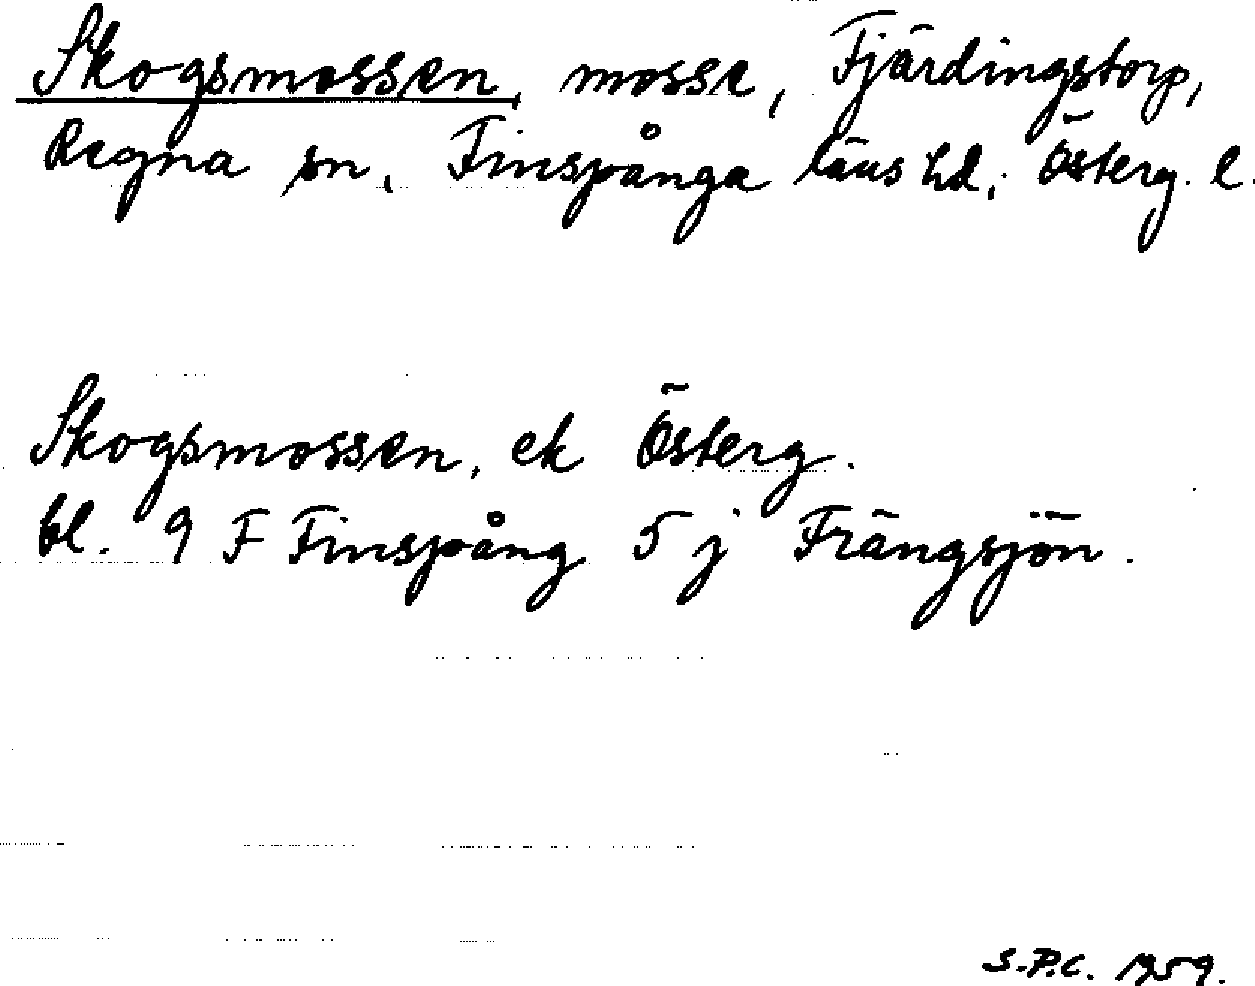 Skogsmossen, mosse, Fjärdingstorp,
Regna sn, Finspånga läns hd, Österg. l.
Skogsmossen, ek Österg.
bl. 9 F Finspång 5 j Frängsjön.
S.P.C. 1959.